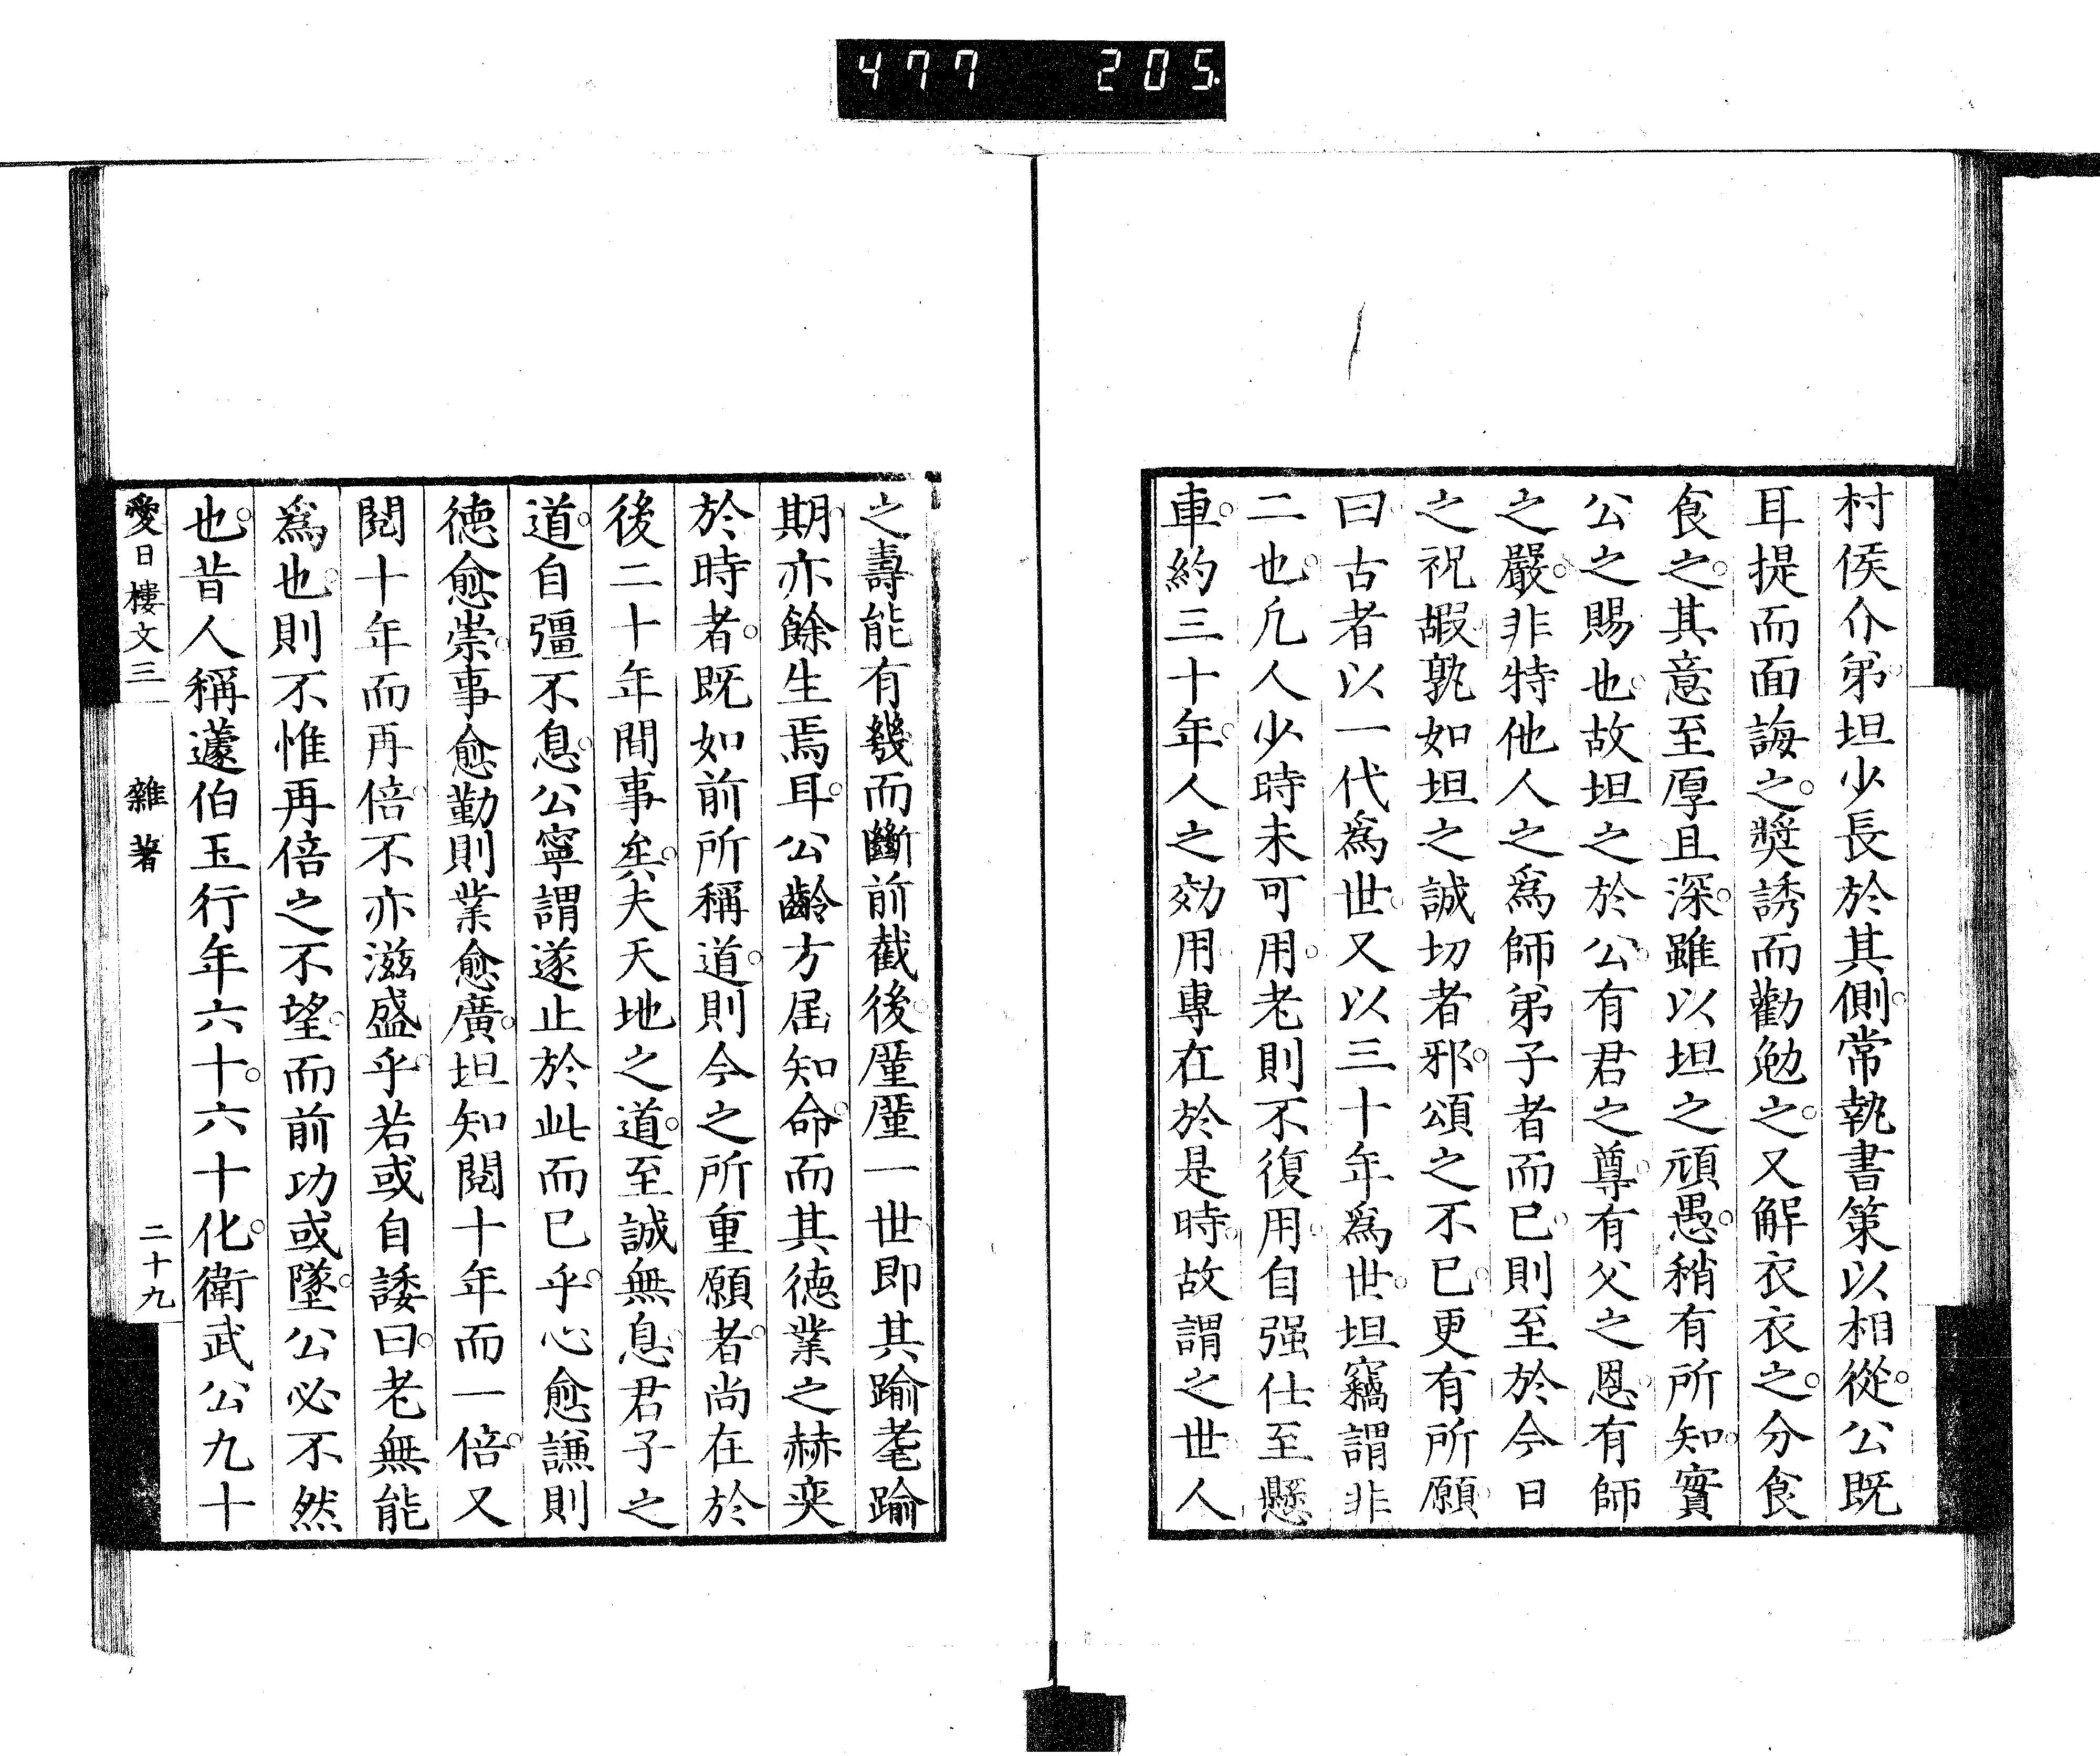 477 205
村侯介弟坦少長於其側常執書策以相從。公既
耳提而面誨之。獎誘而勸勉之。又解衣衣之。分食
食之。其意至厚且深。雖以坦之頑愚。稍有所知。實
公之賜也。故坦之於公。有君之尊。有父之恩。有師
之嚴。非特他人之爲師弟子者而已。則至於今日
之祝嘏。孰如坦之誠切者邪。頌之不已。更有所願。
曰。古者以一代爲世。又以三十年爲世。坦竊謂非
二也。凡人少時未可用。老則不復用。自强仕至懸
車。約三十年。人之効用。專在於是時。故謂之世。人
之壽能有幾。而斷前截後。厪厪一世。即其踰耄踰
期。亦餘生焉耳。公齡方屆知命。而其德業之赫奕
於時者。既如前所稱道。則今之所重願者。尚在於
後二十年間事矣。夫天地之道。至誠無息。君子之
道。自彊不息。公寧謂遂止於此而已乎。心愈謙則
德愈崇。事愈勤則業愈廣。坦知閱十年而一倍。又
閱十年而再倍。不亦滋盛乎。若或自諉曰。老無能
爲也。則不惟再倍之不望。而前功或墜。公必不然
也。昔人稱蘧伯玉行年六十。六十化。衛武公九十
愛日樓文三 雜著 二十九